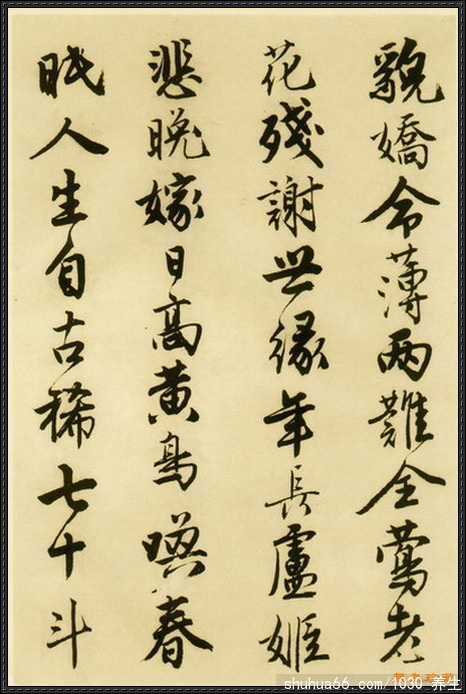 貌嬌命薄两難全鶯老
花殘謝世緣年長盧姬
悲晚嫁日高黄鳥喚春
眠人生自古稀七十斗
shuhua66.com/1030 养生